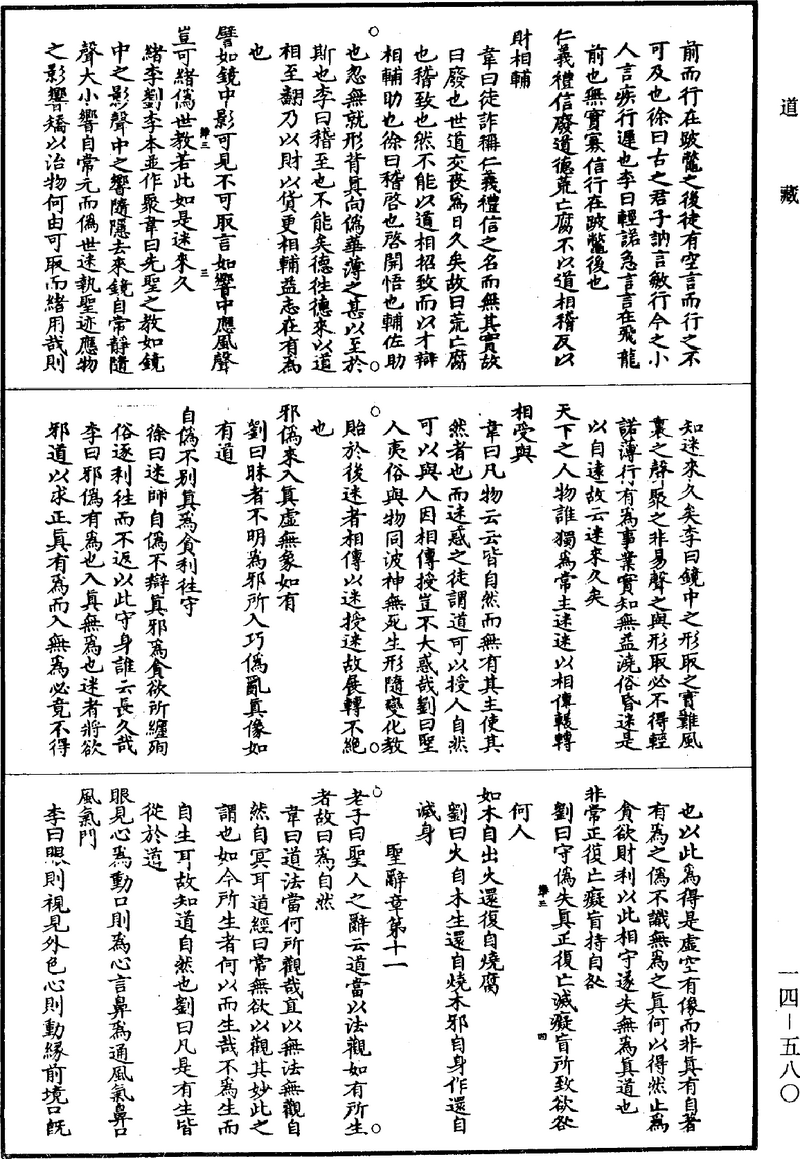 道藏
一四—五八〇
前而行在跛鼈之後徒有空言而行之不
可及也徐曰古之君子訥言敏行今之小
人言疾行遲也李曰輕諾急言言在飛龍
前也無實寡信行在跛鼈後也
仁義禮信廢道德荒亡腐不以道相稽及以
財相輔
韋曰徒詐稱仁義禮信之名而無其實故
曰廢也世道交喪為日久矣故曰荒亡腐
也稽致也然不能以道相招致而以才辯
相輔助也徐曰稽啓也啓開悟也輔佐助
也忽無就形背真向偽華薄之甚以至於
斯也李曰稽至也不能矣德往德來以道
相至翻乃以財以貨更相輔益志在有為
也
譬如鏡中影可見不可取言如響中應風聲
豈可緒偽世教若此如是迷來久
緒李劉李本並作聚韋曰先聖之教如鏡
中之影聲中之響隨隱去來鏡自常靜隨
聲大小響自常元而偽世迷執聖迹應物
之影響矯以治物何由可取而緒用哉則
知迷來久矣李曰鏡中之形取之實難風
裏之聲聚之非易聲之與形取必不得輕
諾薄行有為事業實知無益澆俗昏迷是
以自遠故云迷來久矣
天下之人物誰獨為常主迷迷以相傳輾轉
相受與
韋曰凡物云云皆自然而無有其主使其
然者也而迷惑之徒謂道可以授人自然
可以與人因相傳授豈不大惑哉劉曰聖
人夷俗與物同波神無死生形隨變化教
貽於後迷者相傳以迷授迷故展轉不絕
也
邪偽來入真虛無象如有
劉曰昧者不明為邪所入巧偽亂真像如
有道
自偽不別真為貪利往守
徐曰迷師自偽不辯真邪為貪欲所纏殉
俗逐利往而不返以此守身誰云長久哉
李曰邪偽有為也入真無為也迷者將欲
邪道以求正真有為而入無為必竟不得
也以此為得是虛空有像而非真有自著
有為之偽不識無為之真何以得然止為
貪欲財利以此相守遂失無為真道也
非常正復亡癡盲持自欲
劉曰守偽失真正復亡滅癡盲所致欲欲
何人
如木自出火還復自燒腐
劉曰火自木生還自燒木邪自身作還自
滅身
聖辭章第十一
老子曰聖人之辭云道當以法觀如有所生
者故曰為自然
韋曰道法當何所觀哉宜以無法無觀自
然自冥耳道經曰常無欲以觀其妙此之
謂也如今所生者何以而生哉不為生而
自生耳故知道自然也劉曰凡是有生皆
從於道
眼見心為動口則為心言鼻為通風氣鼻口
風氣門
李曰眼則視見外色心則動緣前境口旣